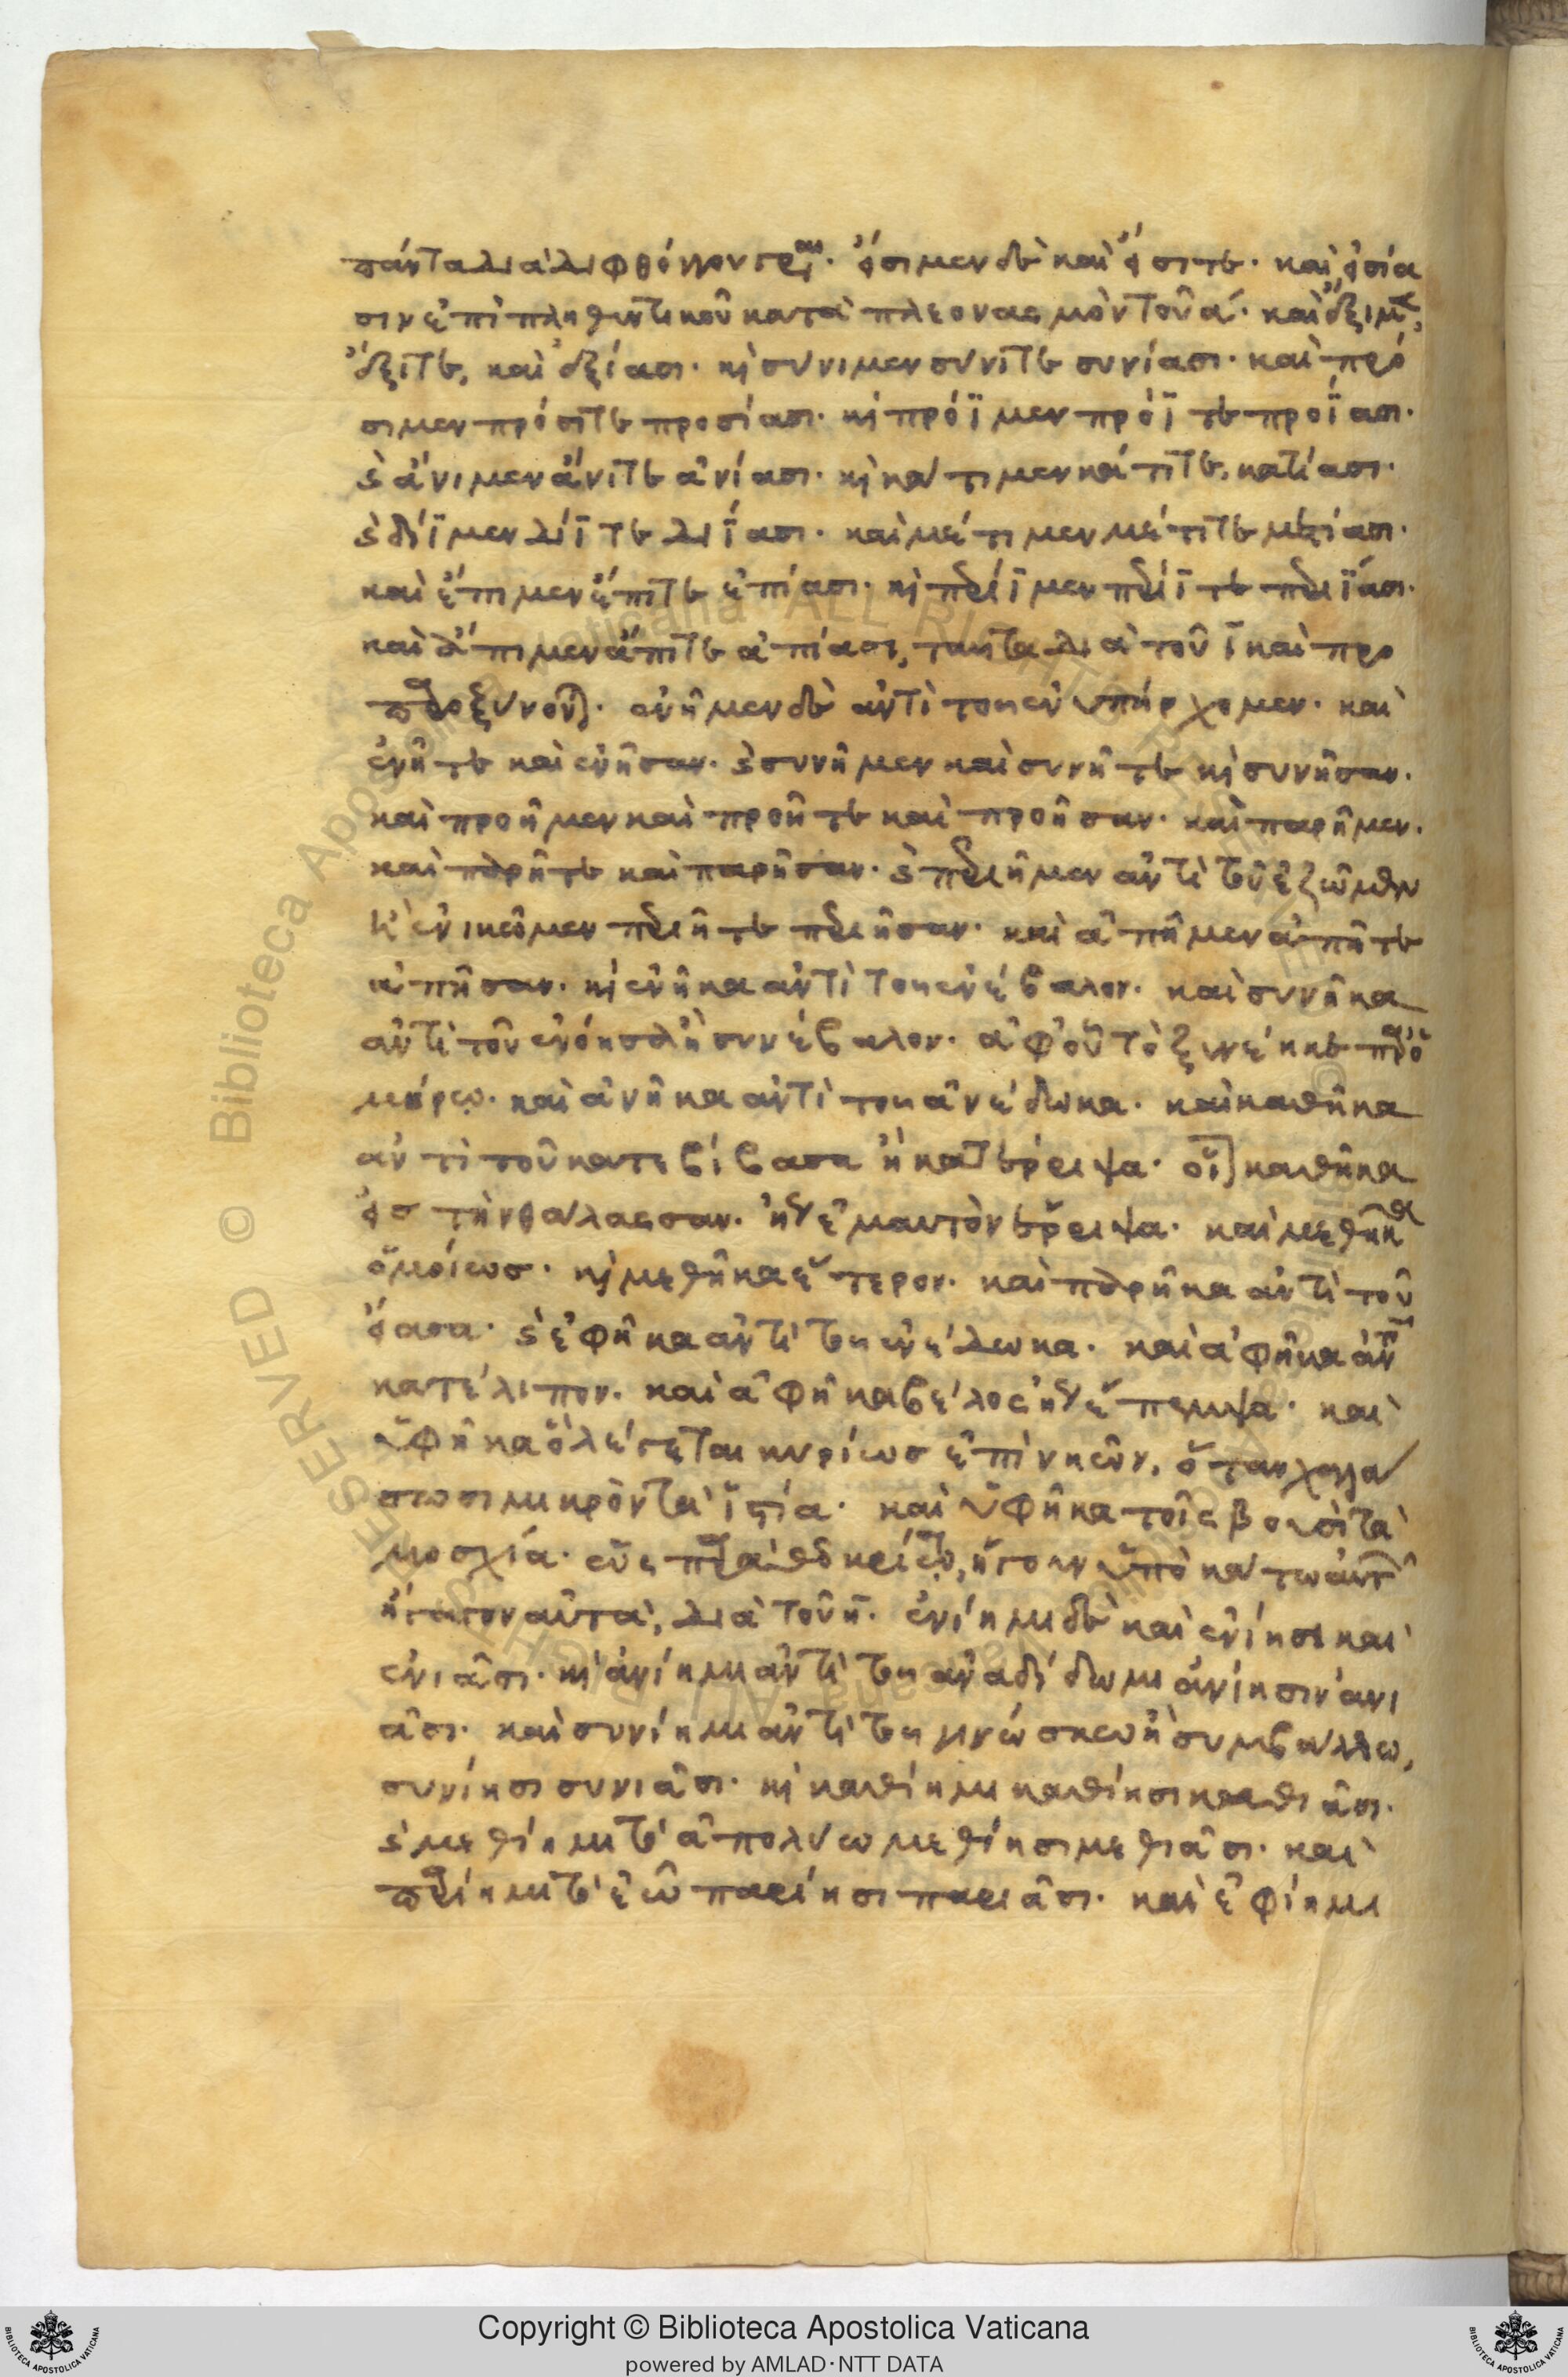 πάντα διὰ διφθόγγου γράφεται. εἴσιμεν δὲ καὶ εἴσιτε. καὶ εἰσία
σιν ἐπὶ πληθυντικοῦ κατὰ πλεονασμὸν τοῦ α. καὶ ἔξιμεν,
ἔξιτε, καὶ ἐξίασι. καὶ σύνιμεν σύνιτε συνίασι. καὶ πρό
σιμεν πρόσιτε προσίασι. καὶ πρόϊμεν πρόϊτε προΐασι.
καὶ ἄνιμεν ἄνιτε ἀνίασι. καὶ κάτιμεν κάτιτε, κατίασι.
καὶ δίϊμεν δίϊτε διΐασι. καὶ μέτιμεν μέτιτε μετίασι.
καὶ ἔπιμεν ἔπιτε ἐπίασι. καὶ περίϊμεν περίϊτε περιΐασι.
καὶ ἄπιμεν ἄπιτε ἀπίασι, ταῦτα διὰ τοῦ ϊ καὶ προ
παροξύνονται. ἐνῆμεν δὲ ἀντὶ τοῦ ἐνυπάρχομεν. καὶ
ἐνῆτε καὶ ἐνῆσαν. καὶ συνῆμεν καὶ συνῆτε καὶ συνῆσαν.
καὶ προῆμεν καὶ προῆτε καὶ προῆσαν. καὶ παρῆμεν.
καὶ παρῆτε καὶ παρῆσαν. καὶ περιῆμεν ἀντὶ τοῦ ἐζῶμεν
καὶ ἐνικῶμεν περιῆτε περιῆσαν. καὶ ἀπῆμεν ἀπῆτε
ἀπῆσαν. καὶ ἐνῆκα ἀντὶ τοῦ ἐνέβαλον. καὶ συνῆκα
ἀντὶ τοῦ ἐνόησα ἢ συνέβαλον. ἀφ' οὗ τὸ ξυνέηκε παρ' ὁ
μήρῳ. καὶ ἀνῆκα ἀντὶ τοῦ ἀνέδωκα. καὶ καθῆκα
ἀντὶ τοῦ κατεβίβασα ἢ κατέρριψα. οἷον καθῆκα
εἰς τὴν θάλασσαν. ἤγουν ἐμαυτὸν ἔρριψα. καὶ μεθῆκα
ὁμοίως. καὶ μεθῆκα ἕτερον. καὶ παρῆκα ἀντὶ τοῦ
εἴασα. καὶ ἐφῆκα ἀντὶ τοῦ ἐνέδωκα. καὶ ἀφῆκα ἀντὶ
κατέλιπον. καὶ ἀφῆκα βέλος ἤγουν ἔπεμψα. καὶ
ὑφῆκα ὃ λέγεται κυρίως ἐπὶ νηῶν, ὅταν χαλά
σωσι μικρὸν τὰ ἱστία. καὶ ὑφῆκα τοῖς βουσὶ τὰ
μοσχία. ὡς παρὰ θεοκρίτῳ, ἤγουν ὑποκάτω αὐτῶν
ἤγαγον αὐτὰ, διὰ τοῦ η. ἐνίημι δὲ καὶ ἐνίησι καὶ
ἐνιᾶσι. καὶ ἀνίημι ἀντὶ τοῦ ἀναδίδωμι ἀνίησιν ἀνι
ᾶσι. καὶ συνίημι ἀντὶ τοῦ γινώσκω ἢ συμβάλλω,
συνίησι συνιᾶσι. καὶ καθίημι καθίησι καθιᾶσι.
καὶ μεθίημι τὸ ἀπολύω μεθίησι μεθιᾶσι. καὶ
παρίημι τὸ ἐῶ παρίησι παριᾶσι. καὶ ἐφίημι
Copyright © Biblioteca Apostolica Vaticana
powered by AMLAD·NTT DATA